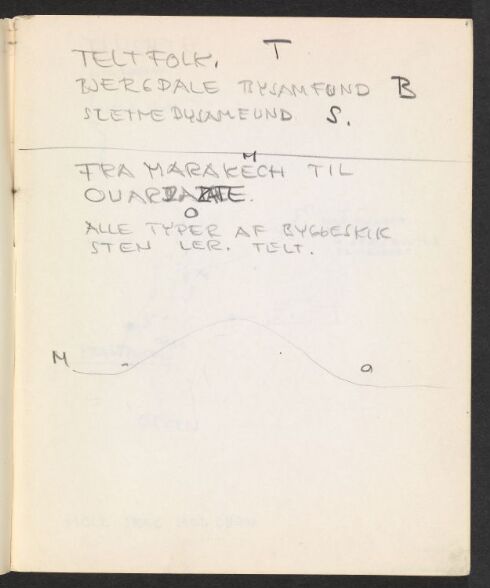 TELTFOLK. T
BJERGDALE BYSAMFUND B
SLETTE BYSAMFUND S.
M
FRA MARAKECH TIL
OUARZAZATE.
O
ALLE TYPER AF BYGGESKIK
STEN LER. TELT.
M
O